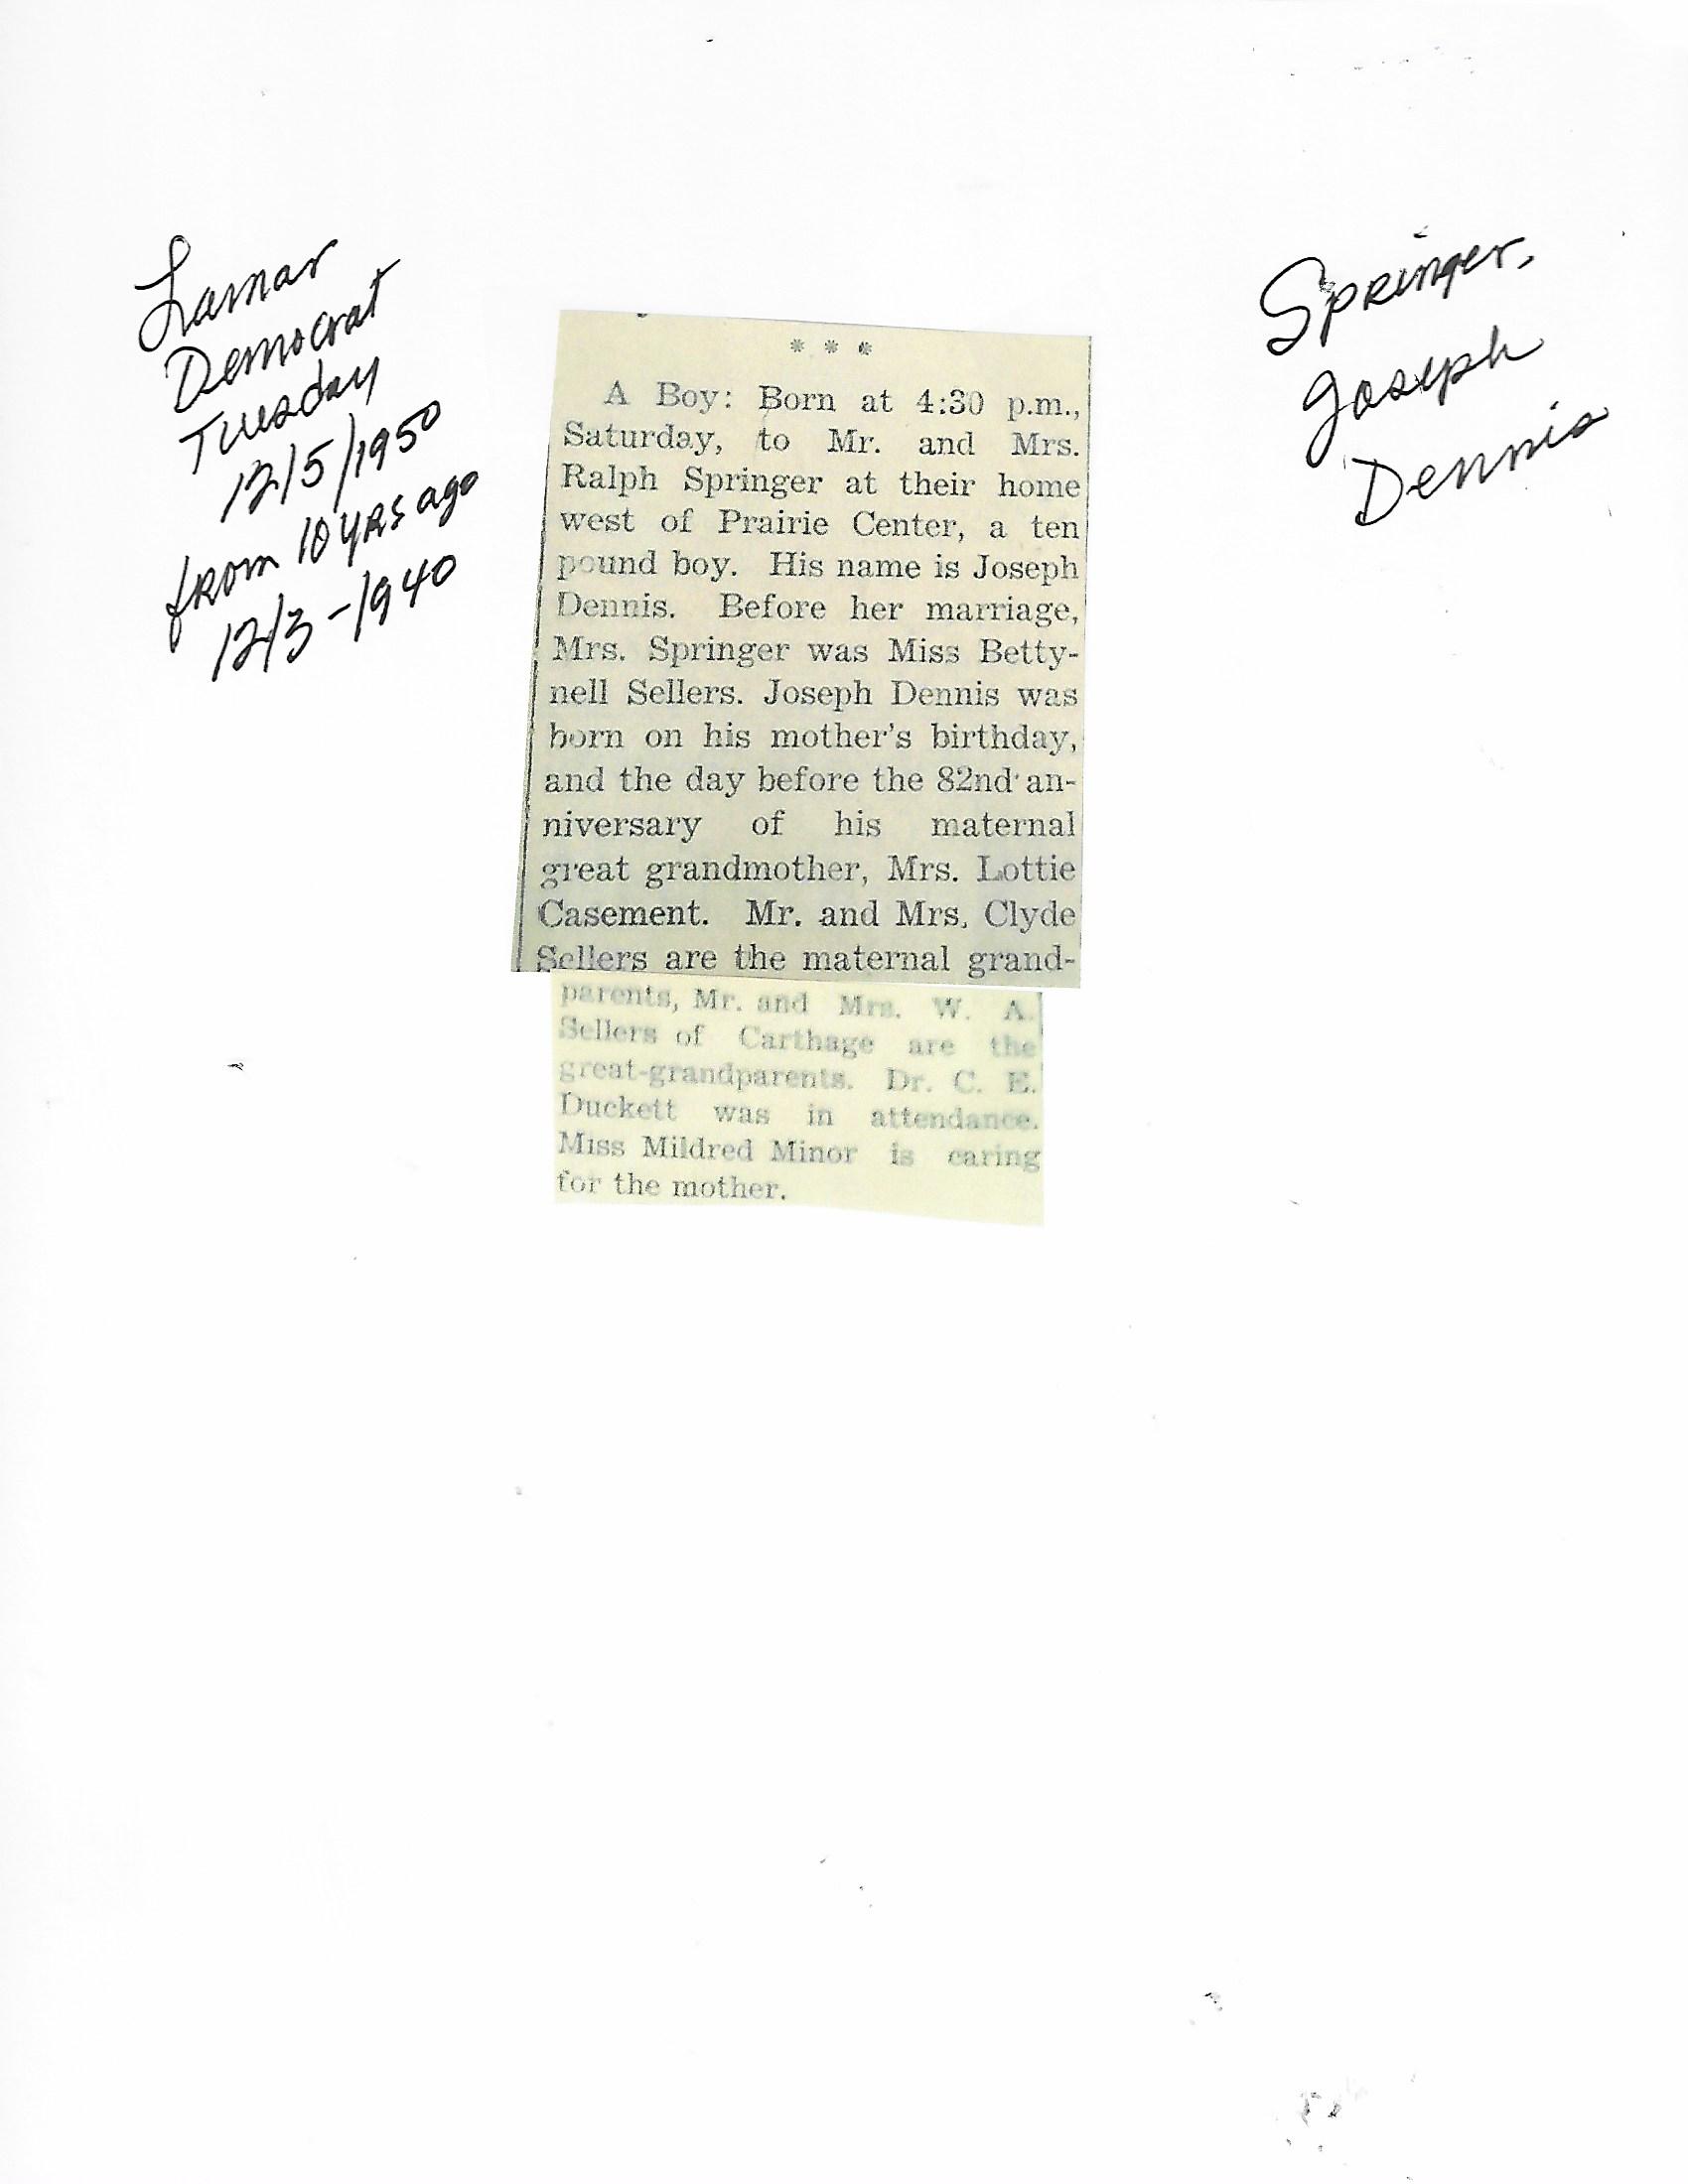 Lamar
Democrat
Tuesday
12/5/1950
from 10 yrs ago
12/3-1940
Springer,
Joseph
Dennis
* * *
A Boy: Born at 4:30 p.m.,
Saturday, to Mr. and Mrs.
Ralph Springer at their home
west of Prairie Center, a ten
pound boy. His name is Joseph
Dennis. Before her marriage,
Mrs. Springer was Miss Betty-
nell Sellers. Joseph Dennis was
born on his mother's birthday,
and the day before the 82nd an-
niversary of his maternal
great grandmother, Mrs. Lottie
Casement. Mr. and Mrs. Clyde
Sellers are the maternal grand-
parents, Mr. and Mrs. W. A.
Sellers of Carthage are the
great-grandparents. Dr. C. E.
Duckett was in attendance.
Miss Mildred Minor is caring
for the mother.